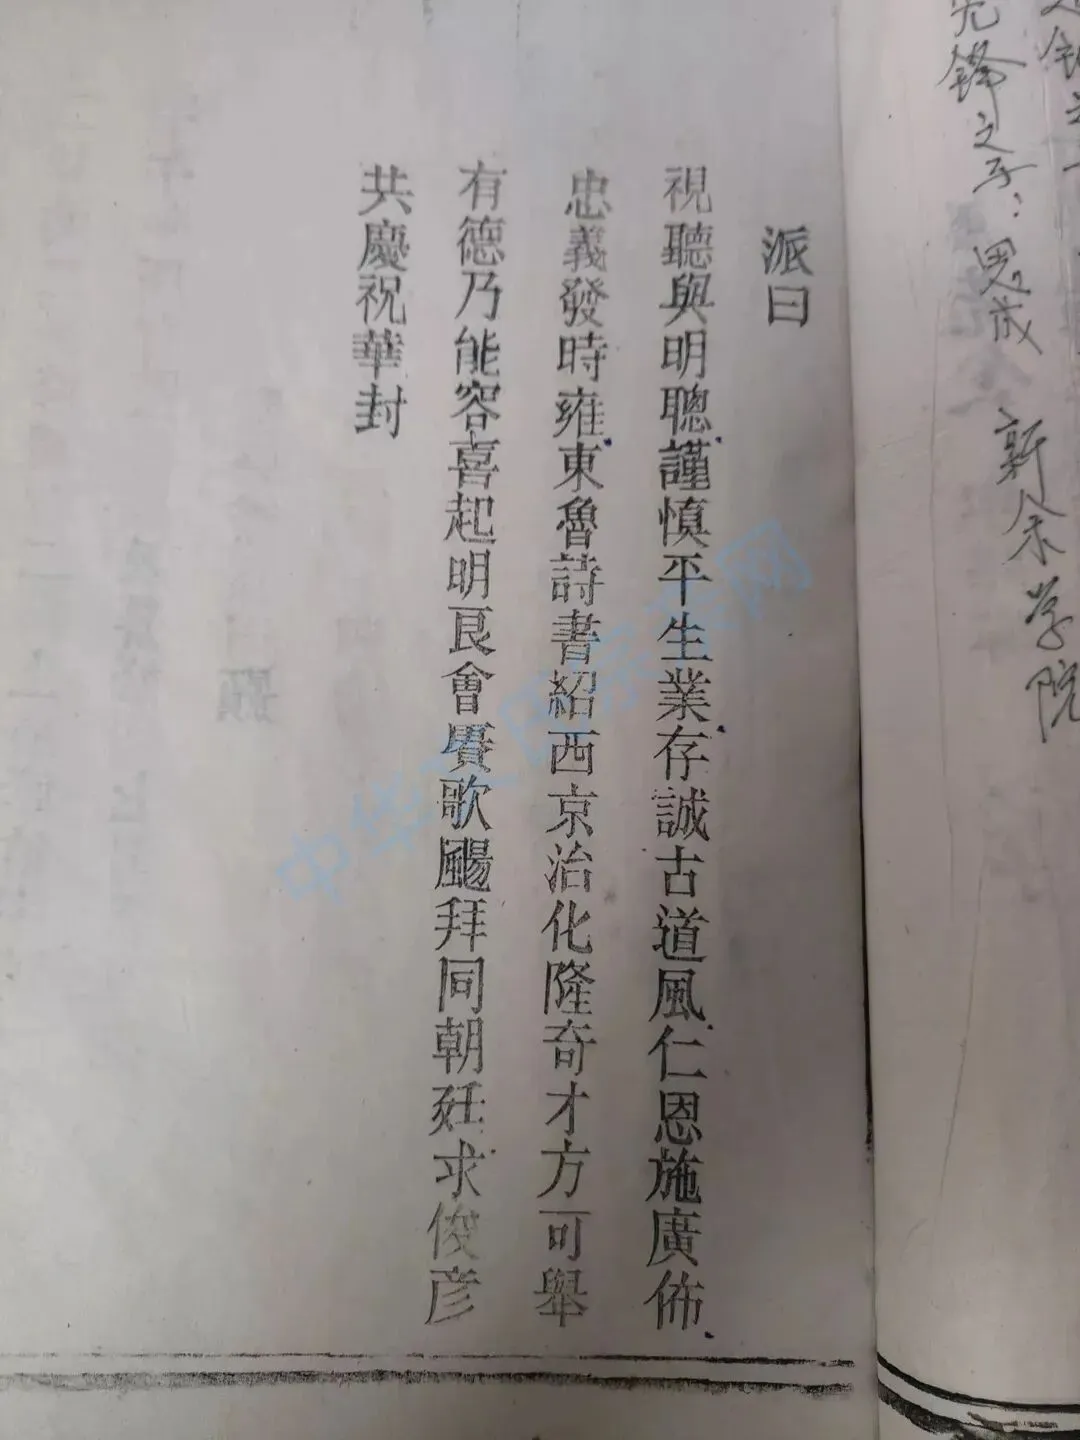 先鋒之子：思成 新余学院
派曰
視聽與明聰謹慎平生業存誠古道風仁恩施廣佈
忠義發時雍東魯詩書紹西京治化隆奇才方可舉
有德乃能容喜起明良會賡歌颺拜同朝廷求俊彥
共慶祝華封
中华 民宗族网